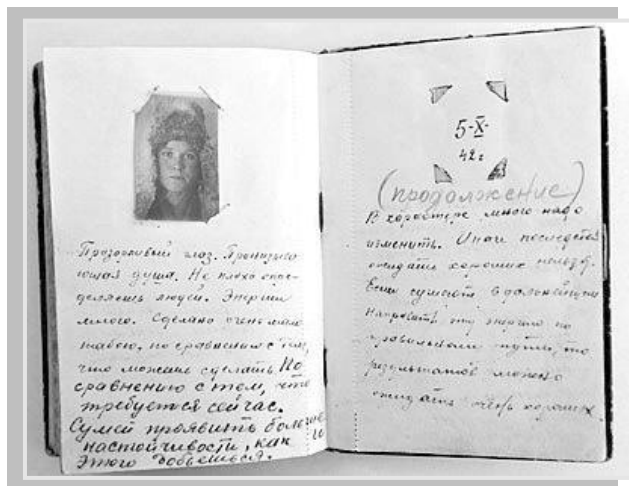 Прозорливый глаз. Пронизыва
ющая душа. Не плохо опре-
деляешь людей. Энергии
много. Сделано очень мало
тобою, по сравнению с тем,
что можешь сделать. По
сравнению с тем, что
требуется сейчас.
Сумей проявить больше
настойчивости, как
этого добьешься.
5-X-
42 г
(продолжение)
В характере много надо
изменить. Иначе последствий
ожидать хороших нельзя.
Если сумеешь в дальнейшем
направить эту энергию по
правильному пути, то
результатов можно
ожидать очень хороших